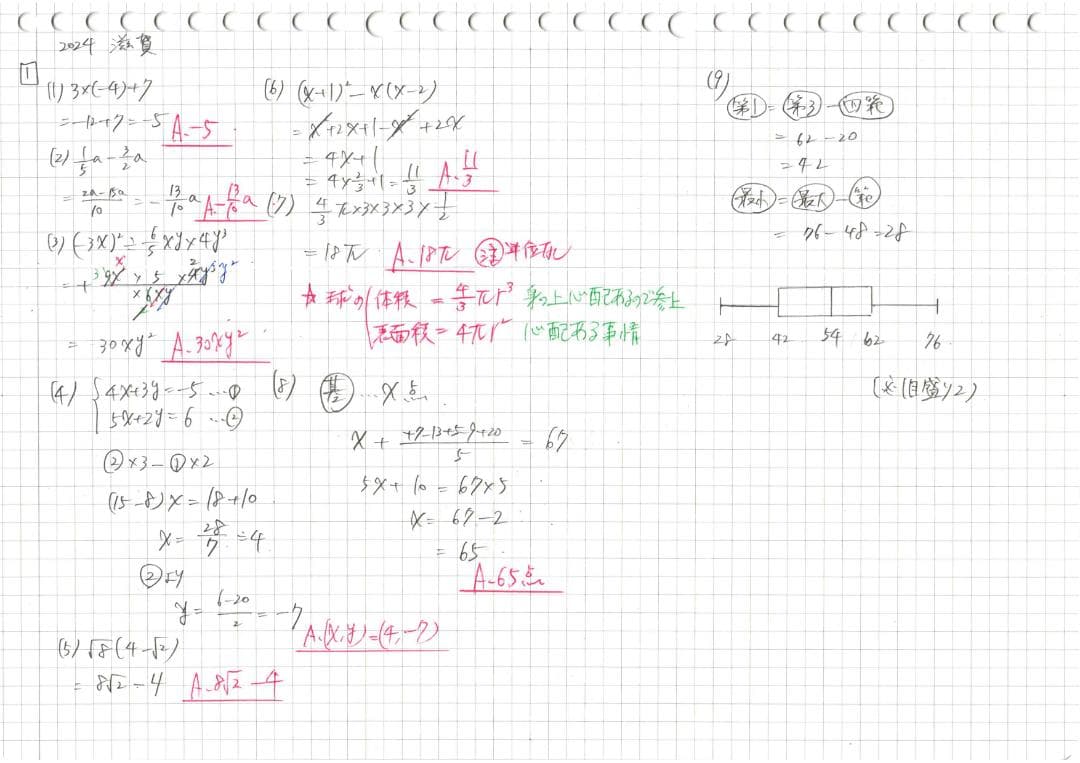 2024 滋賀
1
(1) 3×(-4)+7
=-12+7=-5 A.-5
(2) 1/5a-3/2a
=(2a-15a)/10=-13/10a A.-13/10a
(3) (-3x)²÷6/5xy×4y³
=+(9x²×5×4y³)/(×6xy)
= 30xy² A.30xy²
(4) {4x+3y=-5…①
5x+2y=6…②
②×3-①×2
(15-8)x=18+10
x=28/7=4
②より
y=(6-20)/2=-7
A.(x,y)=(4,-7)
(5) √8(4-√2)
=8√2-4 A.8√2-4
(6) (x+1)²-x(x-2)
=x²+2x+1-x²+2x
=4x+1
=4×2/3+1=11/3 A.11/3
(7) 4/3π×3×3×3×1/2
=18π A.18π 注 単位なし
☆球の{体積=4/3πr³ 身の上心配あるので参上
表面積=4πr² 心配ある事情
(8) 基…x点
x+(+7-13+5-9+20)/5=67
5x+10=67×5
x=67-2
=65
A.65点
(9)
第1=第3-四範
=62-20
=42
最小=最大-範
=76-48=28
28 42 54 62 76
(※1目盛り2)